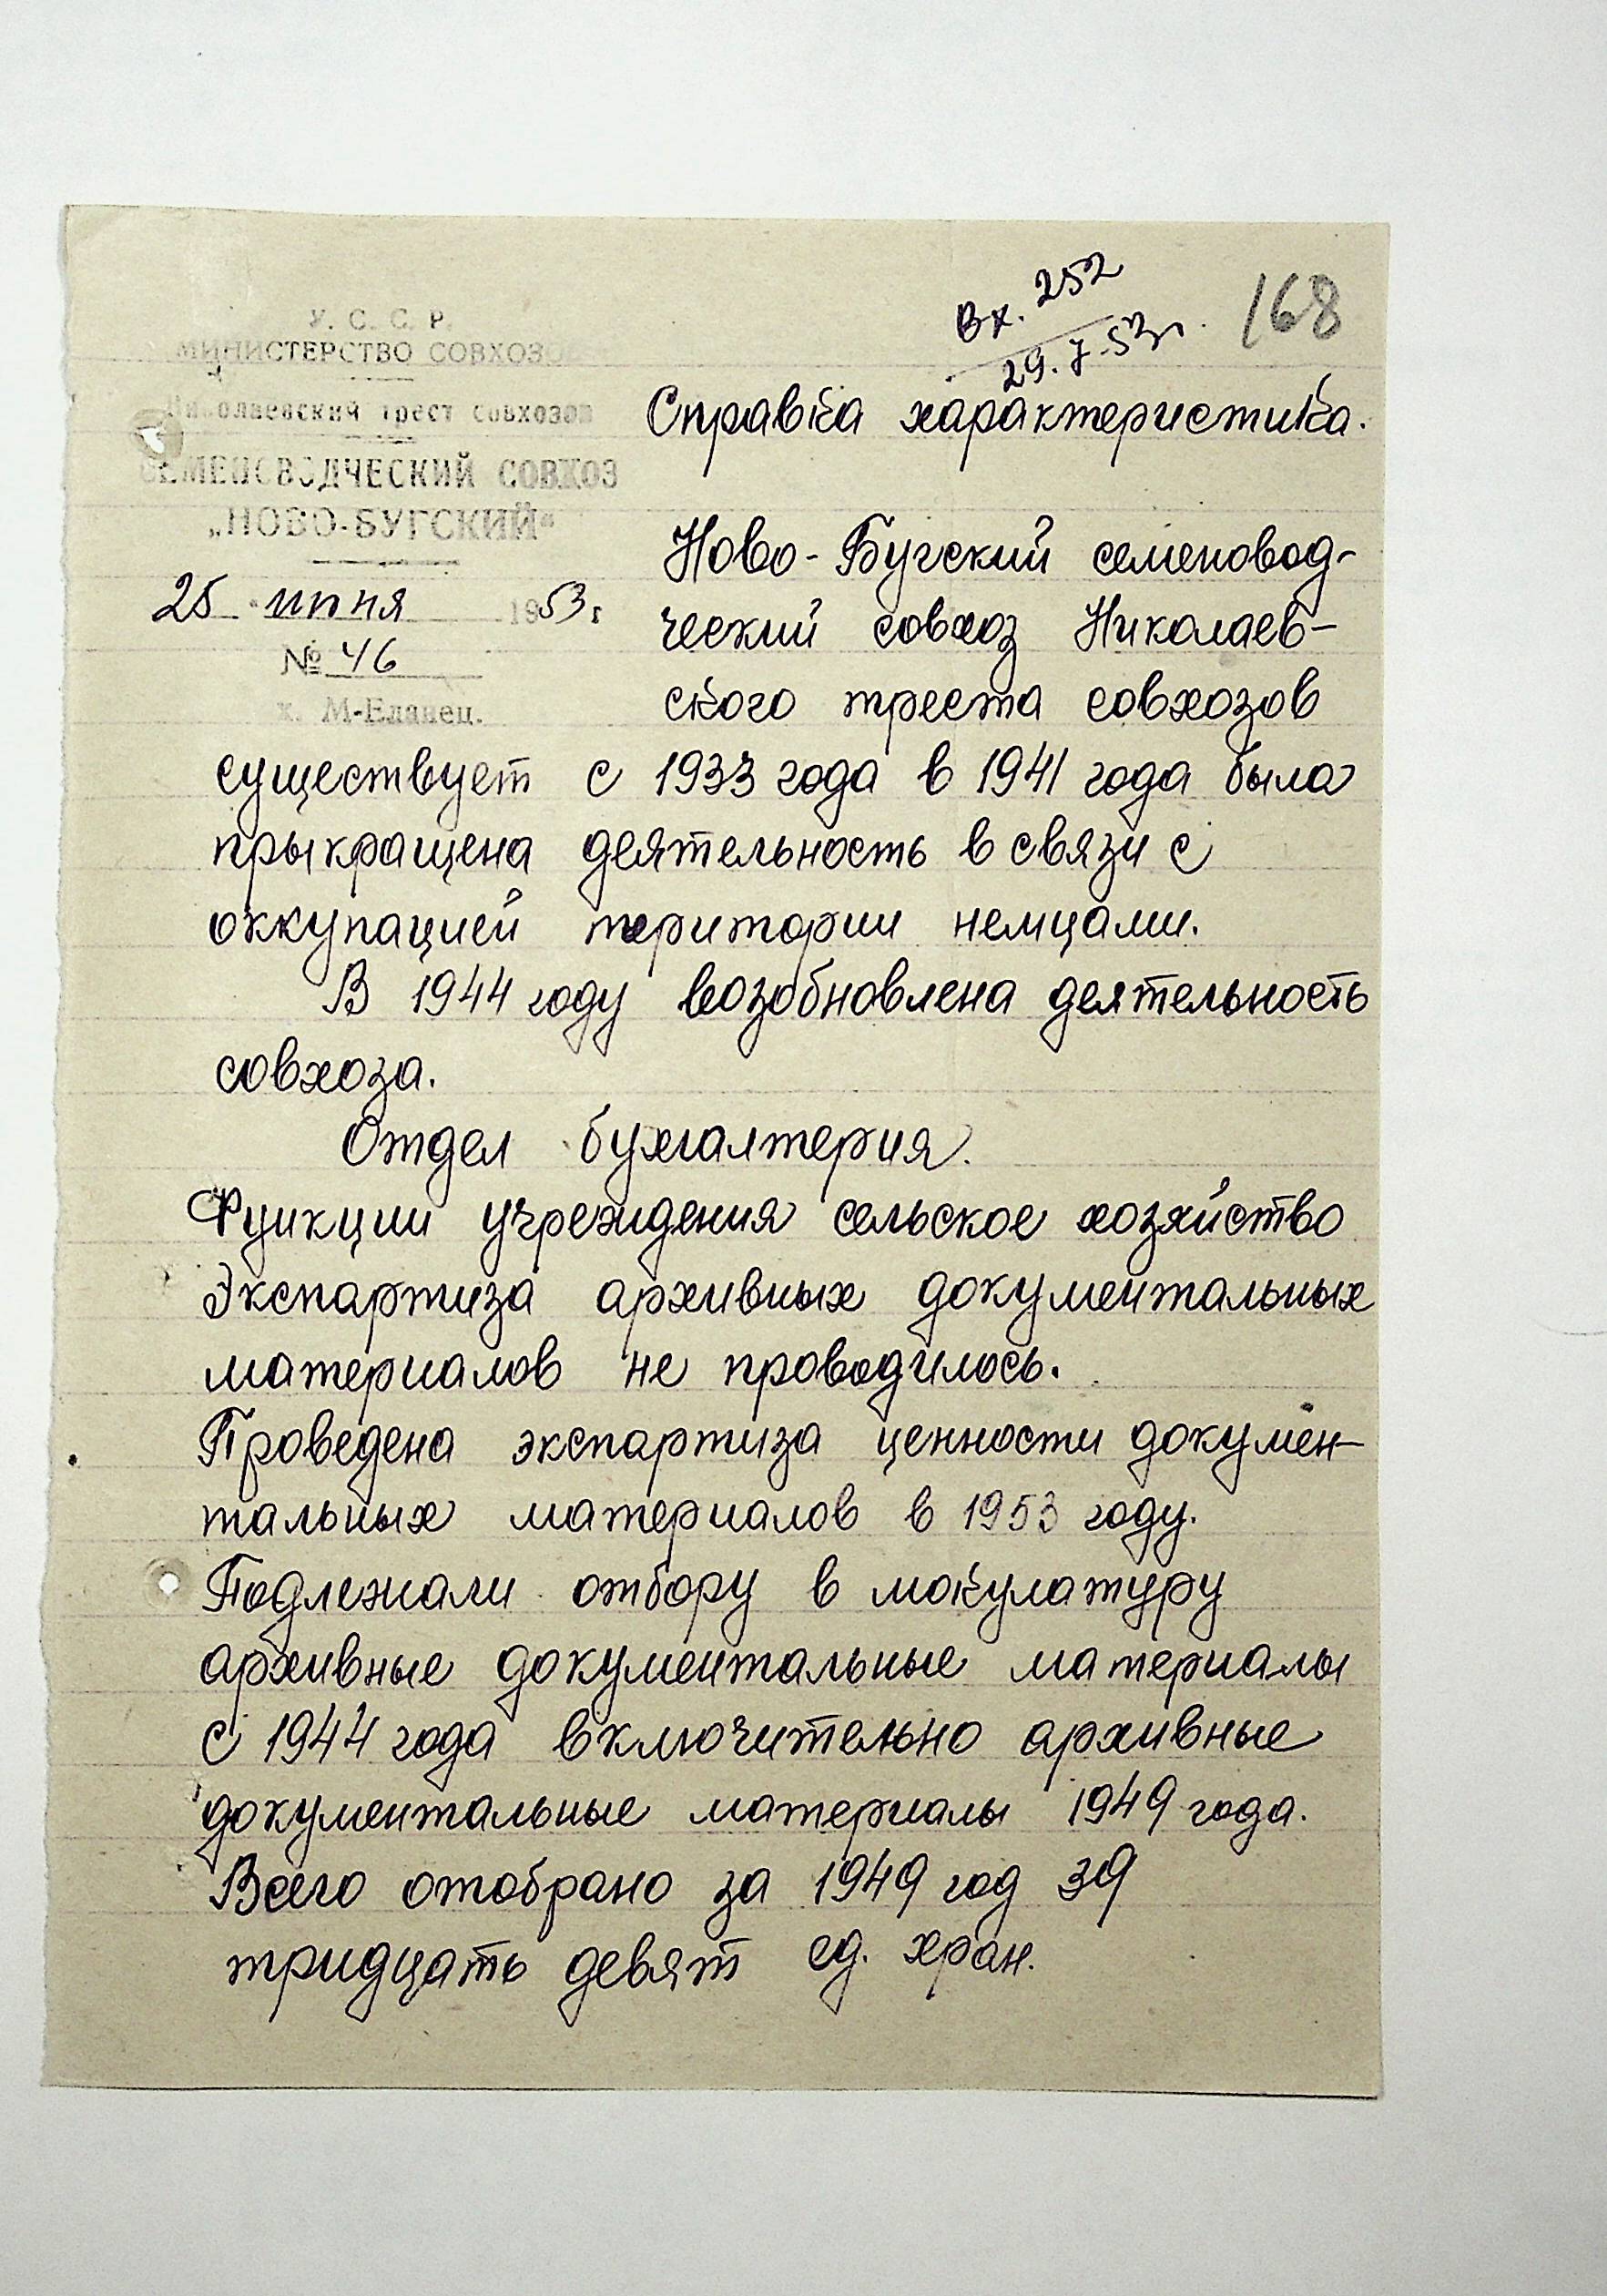 Вх. 252
29.7.53г.
168
У. С. С. Р.
МИНИСТЕРСТВО СОВХОЗОВ
Николаевский трест совхозов
СЕМЕНОВОДЧЕСКИЙ СОВХОЗ
„НОВО-БУГСКИЙ“
25 июня 1953 г.
№ 46
х. М-Еланец.
Справка характеристика.
Ново-Бугский семеновод-
ческий совхоз Николаев-
ского треста совхозов
существует с 1933 года в 1941 года была
прыкращена деятельность в связи с
оккупацией територии немцами.
В 1944 году возобновлена деятельность
совхоза.
Отдел бухгалтерия.
Функции учреждения сельское хозяйство
Экспартиза архивных документальных
материалов не проводилось.
Проведена экспартиза ценности докумен-
тальных материалов в 1953 году.
Подлежали отбору в мокулатуру
архивные документальные материалы
с 1944 года включительно архивные
документальные материалы 1949 года.
Всего отобрано за 1949 год 39
тридцать девят ед. хран.